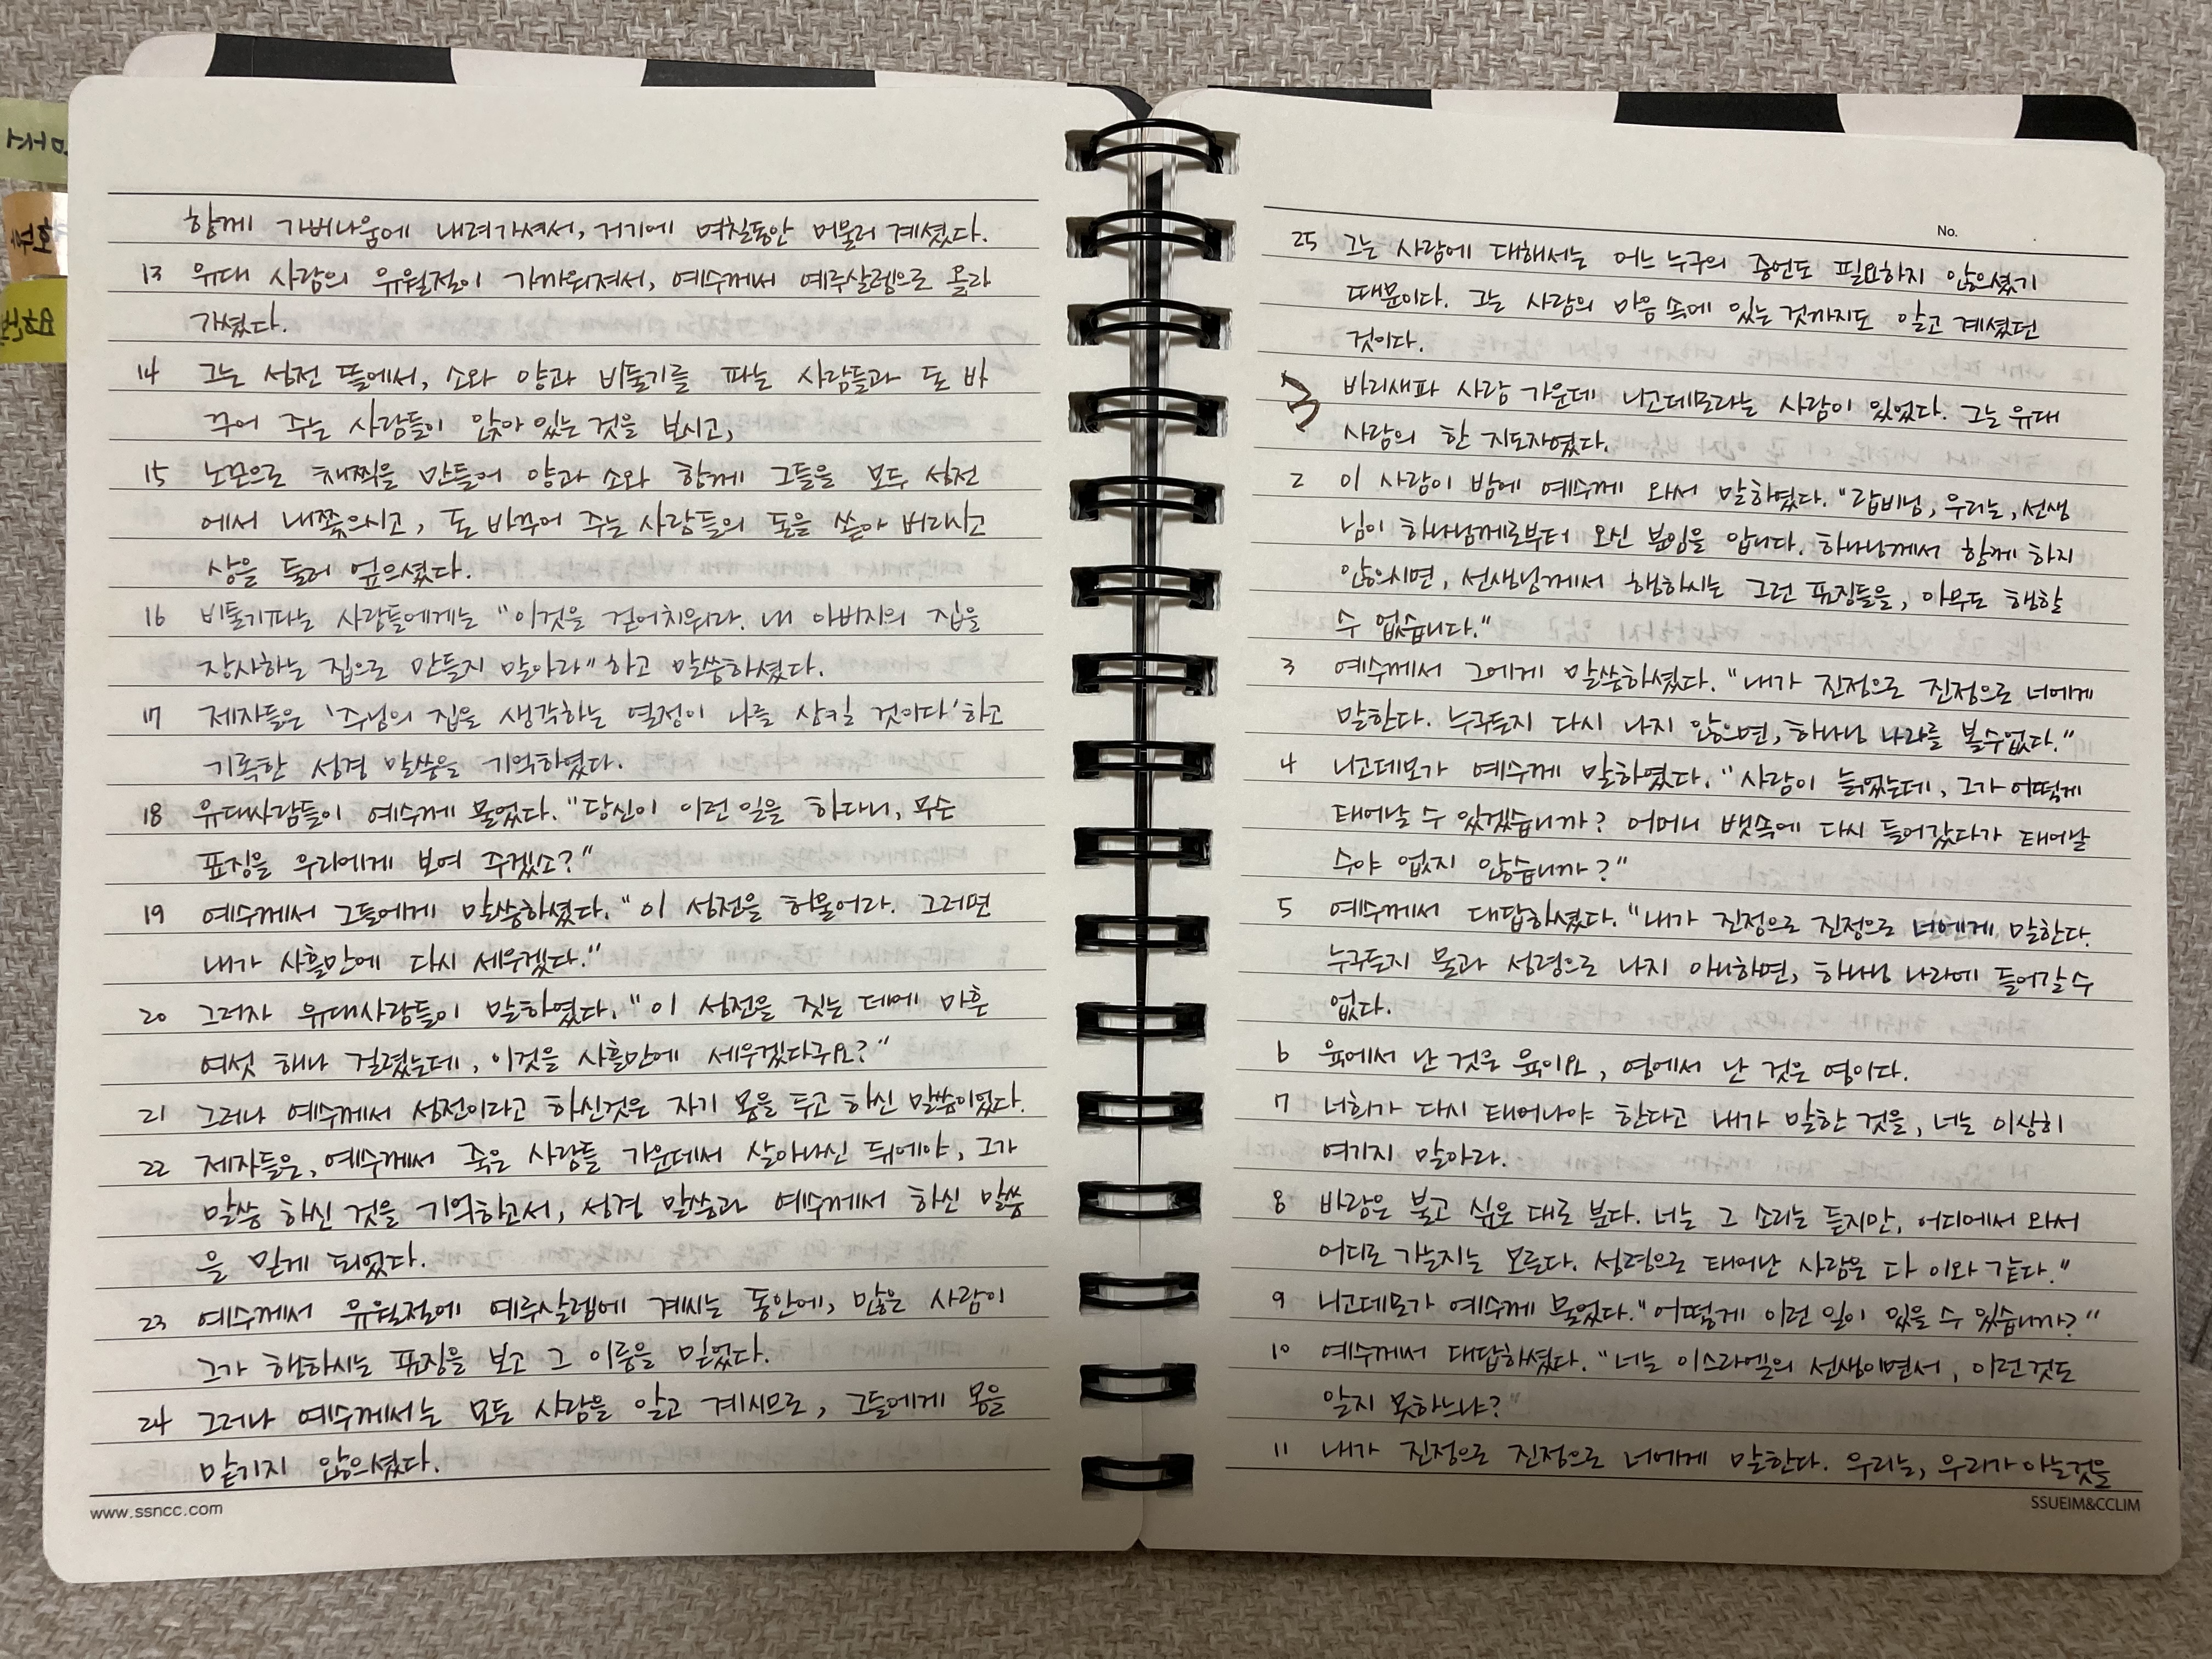 함께 가버나움에 내려가셔서, 거기에 며칠동안 머물러 계셨다.
13 유대 사람의 유월절이 가까워져서, 예수께서 예루살렘으로 올라
가셨다.
14 그는 성전 뜰에서, 소와 양과 비둘기를 파는 사람들과 돈 바
꾸어 주는 사람들이 앉아 있는 것을 보시고,
15 노끈으로 채찍을 만들어 양과 소와 함께 그들을 모두 성전
에서 내쫓으시고, 돈 바꾸어 주는 사람들의 돈을 쏟아 버리시고
상을 둘러 엎으셨다.
16 비둘기파는 사람들에게는 "이것을 걷어치워라. 내 아버지의 집을
장사하는 집으로 만들지 말아라" 하고 말씀하셨다.
17 제자들은 '주님의 집을 생각하는 열정이 나를 삼킬 것이다' 하고
기록한 성경 말씀을 기억하였다.
18 유대사람들이 예수께 물었다. "당신이 이런 일을 하다니, 무슨
표징을 우리에게 보여 주겠소?"
19 예수께서 그들에게 말씀하셨다. "이 성전을 허물어라. 그러면
내가 사흘만에 다시 세우겠다."
20 그러자 유대사람들이 말하였다. "이 성전을 짓는 데에 마흔
여섯 해나 걸렸는데, 이것을 사흘만에 세우겠다구요?"
21 그러나 예수께서 성전이라고 하신것은 자기 몸을 두고 하신 말씀이었다.
22 제자들은, 예수께서 죽은 사람들 가운데서 살아나신 뒤에야, 그가
말씀 하신 것을 기억하고서, 성경 말씀과 예수께서 하신 말씀
을 믿게 되었다.
23 예수께서 유월절에 예루살렘에 계시는 동안에, 많은 사람이
그가 행하시는 표징을 보고 그 이름을 믿었다.
24 그러나 예수께서는 모든 사람을 알고 계시므로, 그들에게 몸을
맡기지 않으셨다.
www.ssncc.com
No.
25 그는 사람에 대해서는 어느 누구의 증언도 필요하지 않으셨기
때문이다. 그는 사람의 마음 속에 있는 것까지도 알고 계셨던
것이다.
3 바리새파 사람 가운데 니고데모라는 사람이 있었다. 그는 유대
사람의 한 지도자였다.
2 이 사람이 밤에 예수께 와서 말하였다. "랍비님, 우리는, 선생
님이 하나님께로부터 오신 분임을 압니다. 하나님께서 함께 하지
않으시면, 선생님께서 행하시는 그런 표징들을, 아무도 행할
수 없습니다."
3 예수께서 그에게 말씀하셨다. "내가 진정으로 진정으로 너에게
말한다. 누구든지 다시 나지 않으면, 하나님 나라를 볼수없다."
4 니고데모가 예수께 말하였다. "사람이 늙었는데, 그가 어떻게
태어날 수 있겠습니까? 어머니 뱃속에 다시 들어갔다가 태어날
수야 없지 않습니까?"
5 예수께서 대답하셨다. "내가 진정으로 진정으로 너에게 말한다.
누구든지 물과 성령으로 나지 아니하면, 하나님 나라에 들어갈 수
없다.
6 육에서 난 것은 육이요, 영에서 난 것은 영이다.
7 너희가 다시 태어나야 한다고 내가 말한 것을, 너는 이상히
여기지 말아라.
8 바람은 불고 싶은 대로 분다. 너는 그 소리는 듣지만, 어디에서 와서
어디로 가는지는 모른다. 성령으로 태어난 사람은 다 이와 같다."
9 니고데모가 예수께 물었다. "어떻게 이런 일이 있을 수 있습니까?"
10 예수께서 대답하셨다. "너는 이스라엘의 선생이면서, 이런것도
알지 못하느냐?"
11 내가 진정으로 진정으로 너에게 말한다. 우리는, 우리가 아는것을
SSUEIM&CCLIM